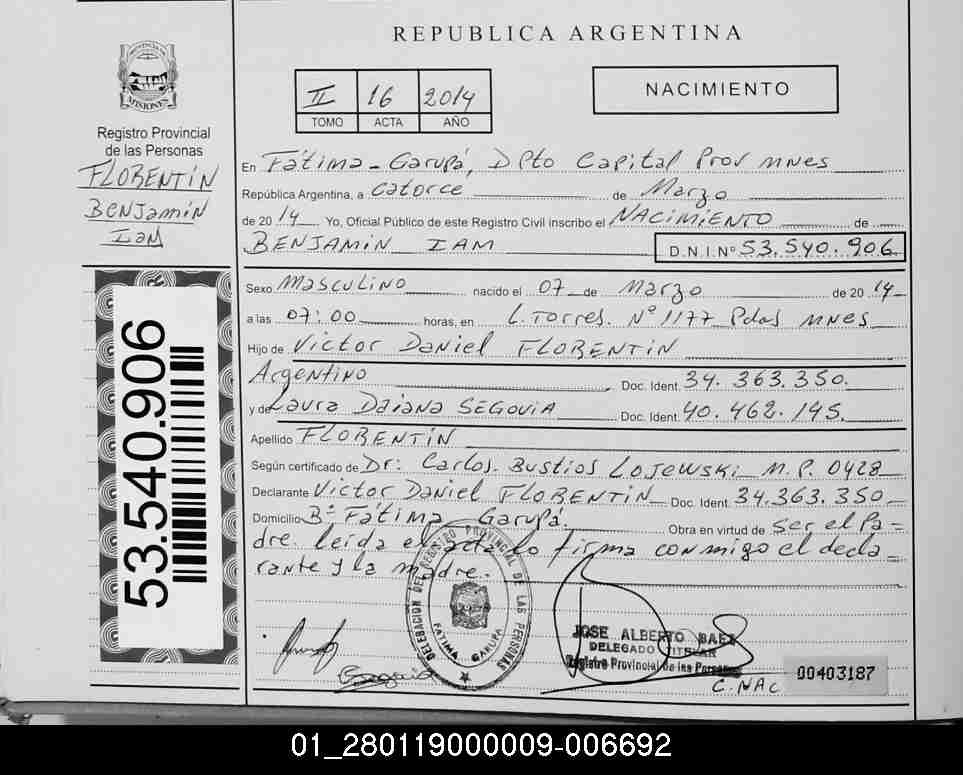 REPUBLICA ARGENTINA
PROVINCIA DE
MISIONES
Registro Provincial
de las Personas
FLORENTÍN
BENJAMÍN
IAM
II 16 2014
TOMO ACTA AÑO
NACIMIENTO
En Fátima - Garupá, Dpto Capital Prov mnes
República Argentina, a catorce de Marzo
de 2014 Yo, Oficial Público de este Registro Civil inscribo el NACIMIENTO de
BENJAMÍN IAM D.N.I.Nº 53.540.906
Sexo Masculino nacido el 07 de Marzo de 2014
a las 07:00 horas, en L. Torres. Nº 1177 Pdas mnes
Hijo de Victor Daniel FLORENTÍN
Argentino Doc. Ident. 34.363.350.
y de Laura Daiana SEGOVIA Doc. Ident. 40.462.145.
Apellido FLORENTÍN
Según certificado de Dr: Carlos. Bustios Lojewski M.P. 0428
Declarante Victor Daniel FLORENTÍN Doc. Ident. 34.363.350
Domicilio Bº Fátima - Garupá. Obra en virtud de ser el Pa-
dre. leída el acta lo firma conmigo el decla-
rante y la madre.
53.540.906
DELEGACION DEL REGISTRO PROVINCIAL DE LAS PERSONAS
FATIMA GARUPA
Segovia
JOSE ALBERTO BAEZ
DELEGADO TITULAR
Registro Provincial de las Personas
C. NAC 00403187
01_280119000009-006692